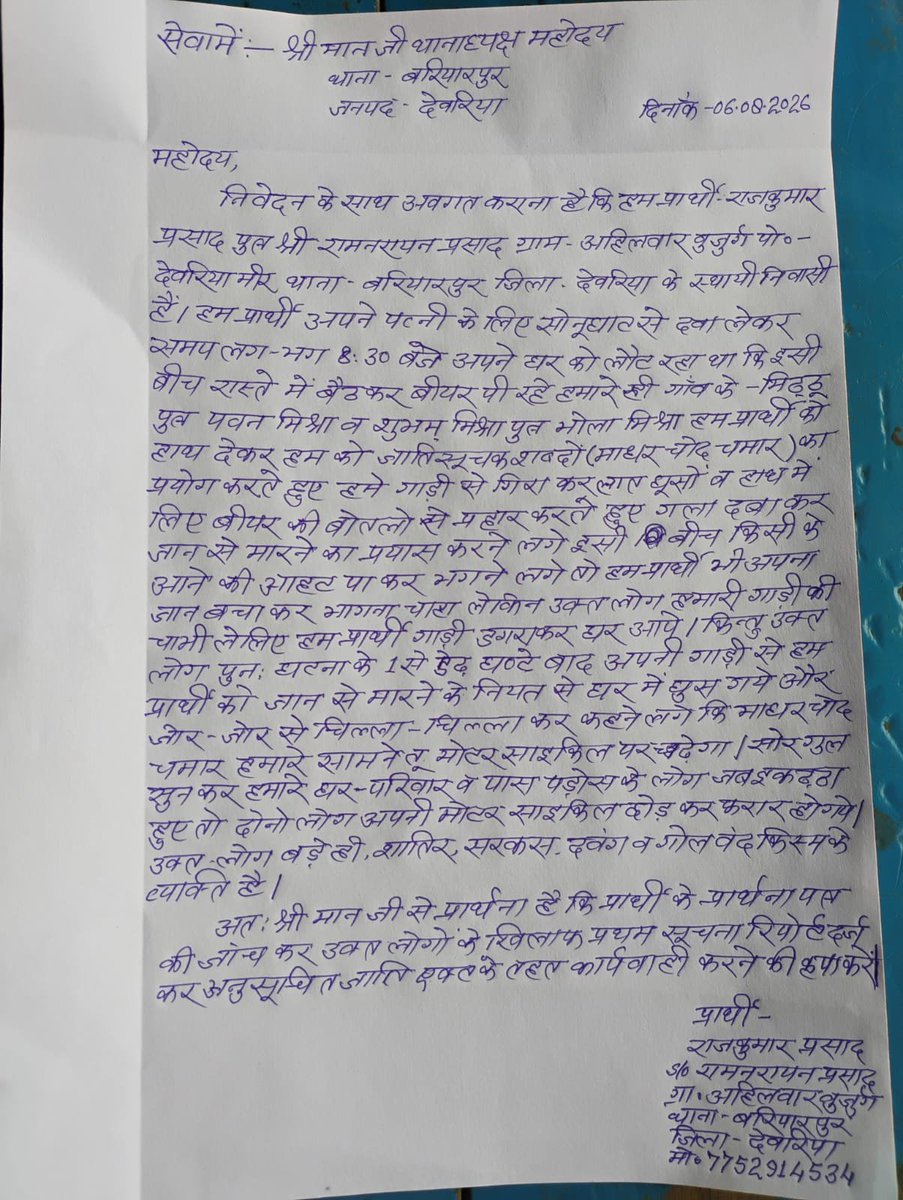 सेवामें :- श्री मान जी थानाध्यक्ष महोदय
थाना - बरियारपुर
जनपद - देवरिया
दिनांक -06.08.2026
महोदय,
निवेदन के साथ अवगत कराना है कि हम प्रार्थी - राजकुमार
प्रसाद पुत्र श्री - रामनरायन प्रसाद ग्राम - अहिलवार बुजुर्ग पो० -
देवरिया मीर थाना - बरियारपुर जिला - देवरिया के स्थायी निवासी
हैं। हम प्रार्थी अपने पत्नी के लिए सोनूघाट से दवा लेकर
समय लग-भग 8:30 बजे अपने घर को लौट रहा था कि इसी
बीच रास्ते में बैठकर बीयर पी रहे हमारे ही गाँव के - मिट्ठू
पुत्र पवन मिश्रा व शुभम् मिश्रा पुत्र भोला मिश्रा हम प्रार्थी को
हाथ देकर हम को जाति सूचक शब्दों (माधर चोद चमार) का
प्रयोग करते हुए हमे गाड़ी से गिरा कर लात घूसों व हाथ मे
लिए बीयर की बोतलो से प्रहार करते हुए गला दबा कर
जान से मारने का प्रयास करने लगे इसी बीच किसी के
आने की आहट पा कर भगने लगे तो हम प्रार्थी भी अपना
जान बचा कर भागना चाहा लेकिन उक्त लोग हमारी गाड़ी की
चाभी लेलिए हम प्रार्थी गाड़ी डगराकर घर आये। किन्तु उक्त
लोग पुन: घटना के 1 से डेढ़ घण्टे बाद अपनी गाड़ी से हम
प्रार्थी को जान से मारने के नियत से घर में घुस गये और
जोर-जोर से चिल्ला-चिल्ला कर कहने लगे कि माधर चोद
चमार हमारे सामने तू मोटर साइकिल पर चढ़ेगा। सोर गुल
सुन कर हमारे घर-परिवार व पास पड़ोस के लोग जब इकट्ठा
हुए तो दोनो लोग अपनी मोटर साइकिल छोड़ कर फरार हो गये।
उक्त-लोग बड़े ही, शातिर, सरकस, दवंग व गोल वंद किस्म के
व्यक्ति है।
अत: श्री मान जी से प्रार्थना है कि प्रार्थी के प्रार्थना पत्र
की जांच कर उक्त लोगों के खिलाफ प्रथम सूचना रिपोर्ट दर्ज
कर अनुसूचित जाति एक्ट के तहत कार्यवाही करने की कृपा करें।
प्रार्थी -
राजकुमार प्रसाद
S/o रामनरायन प्रसाद
ग्रा. अहिलवार बुजुर्ग
थाना - बरियारपुर
जिला - देवरिया
मो० 7752914534